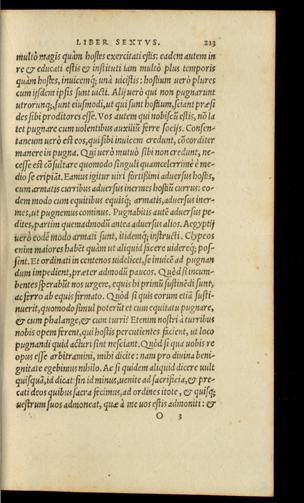 LIBER SEXTVS. 213
multò magis quàm hostes exercitati estis: eadem autem in
re & educati estis & instituti iam multò plus temporis
quàm hostes, inuicemq́; unà uicistis: hostium uerò plures
cum ijsdem ipsis sunt uicti. Alij uerò qui non pugnarunt
utrorunq;, sunt eiusmodi, ut qui sunt hostium, sciant præsi
des sibi proditores esse. Vos autem qui nobiscũ estis, nō la
tet pugnare cum uolentibus auxiliũ ferre socijs. Consen-
taneum uerò est eos, qui sibi inuicem credunt, cōcorditer
manere in pugna. Qui uerò mutuò sibi non credunt, ne-
cesse est cōsultare quomodo singuli quamcelerrimè è me-
dio se eripiāt. Eamus igitur uiri fortissimi aduersus hostes,
cum armatis curribus aduersus inermes hostiũ currus: eo-
dem modo cum equitibus equisq́; armatis, aduersus iner-
mes, ut pugnemus cominus. Pugnabitis autē aduersus pe-
dites, partim quemadmodũ antea aduersus alios. Aegyptij
uerò eodē modo armati sunt, itidemq́; instructi. Clypeos
enim maiores habēt quàm ut aliquid facere uidereq́; pos-
sint. Et ordinati in centenos uidelicet, se inuicē ad pugnan
dum impedient, præter admodũ paucos. Quòd si incum-
bentes sperabũt nos urgere, equis hi primũ sustinēdi sunt,
ac ferro ab equis firmato. Quòd si quis eorum etiā susti-
nuerit, quomodo simul poterũt et cum equitatu pugnare,
& cum phalange, & cum turri? Etenim nostri à turribus
nobis opem ferent, qui hostis percutientes facient, ut loco
pugnandi quid acturi sint nesciant. Quòd si qua uobis re
opus esse arbitramini, mihi dicite: nam pro diuina beni-
gnitate egebimus nihilo. Ac si quidem aliquid dicere uult
quisquā, id dicat: sin id minus, uenite ad sacrificia, & pre-
cati deos quibus sacra fecimus, ad ordines itote, & quisq́;
uestrum suos admoneat, quæ à me uos estis admoniti: &
O 3